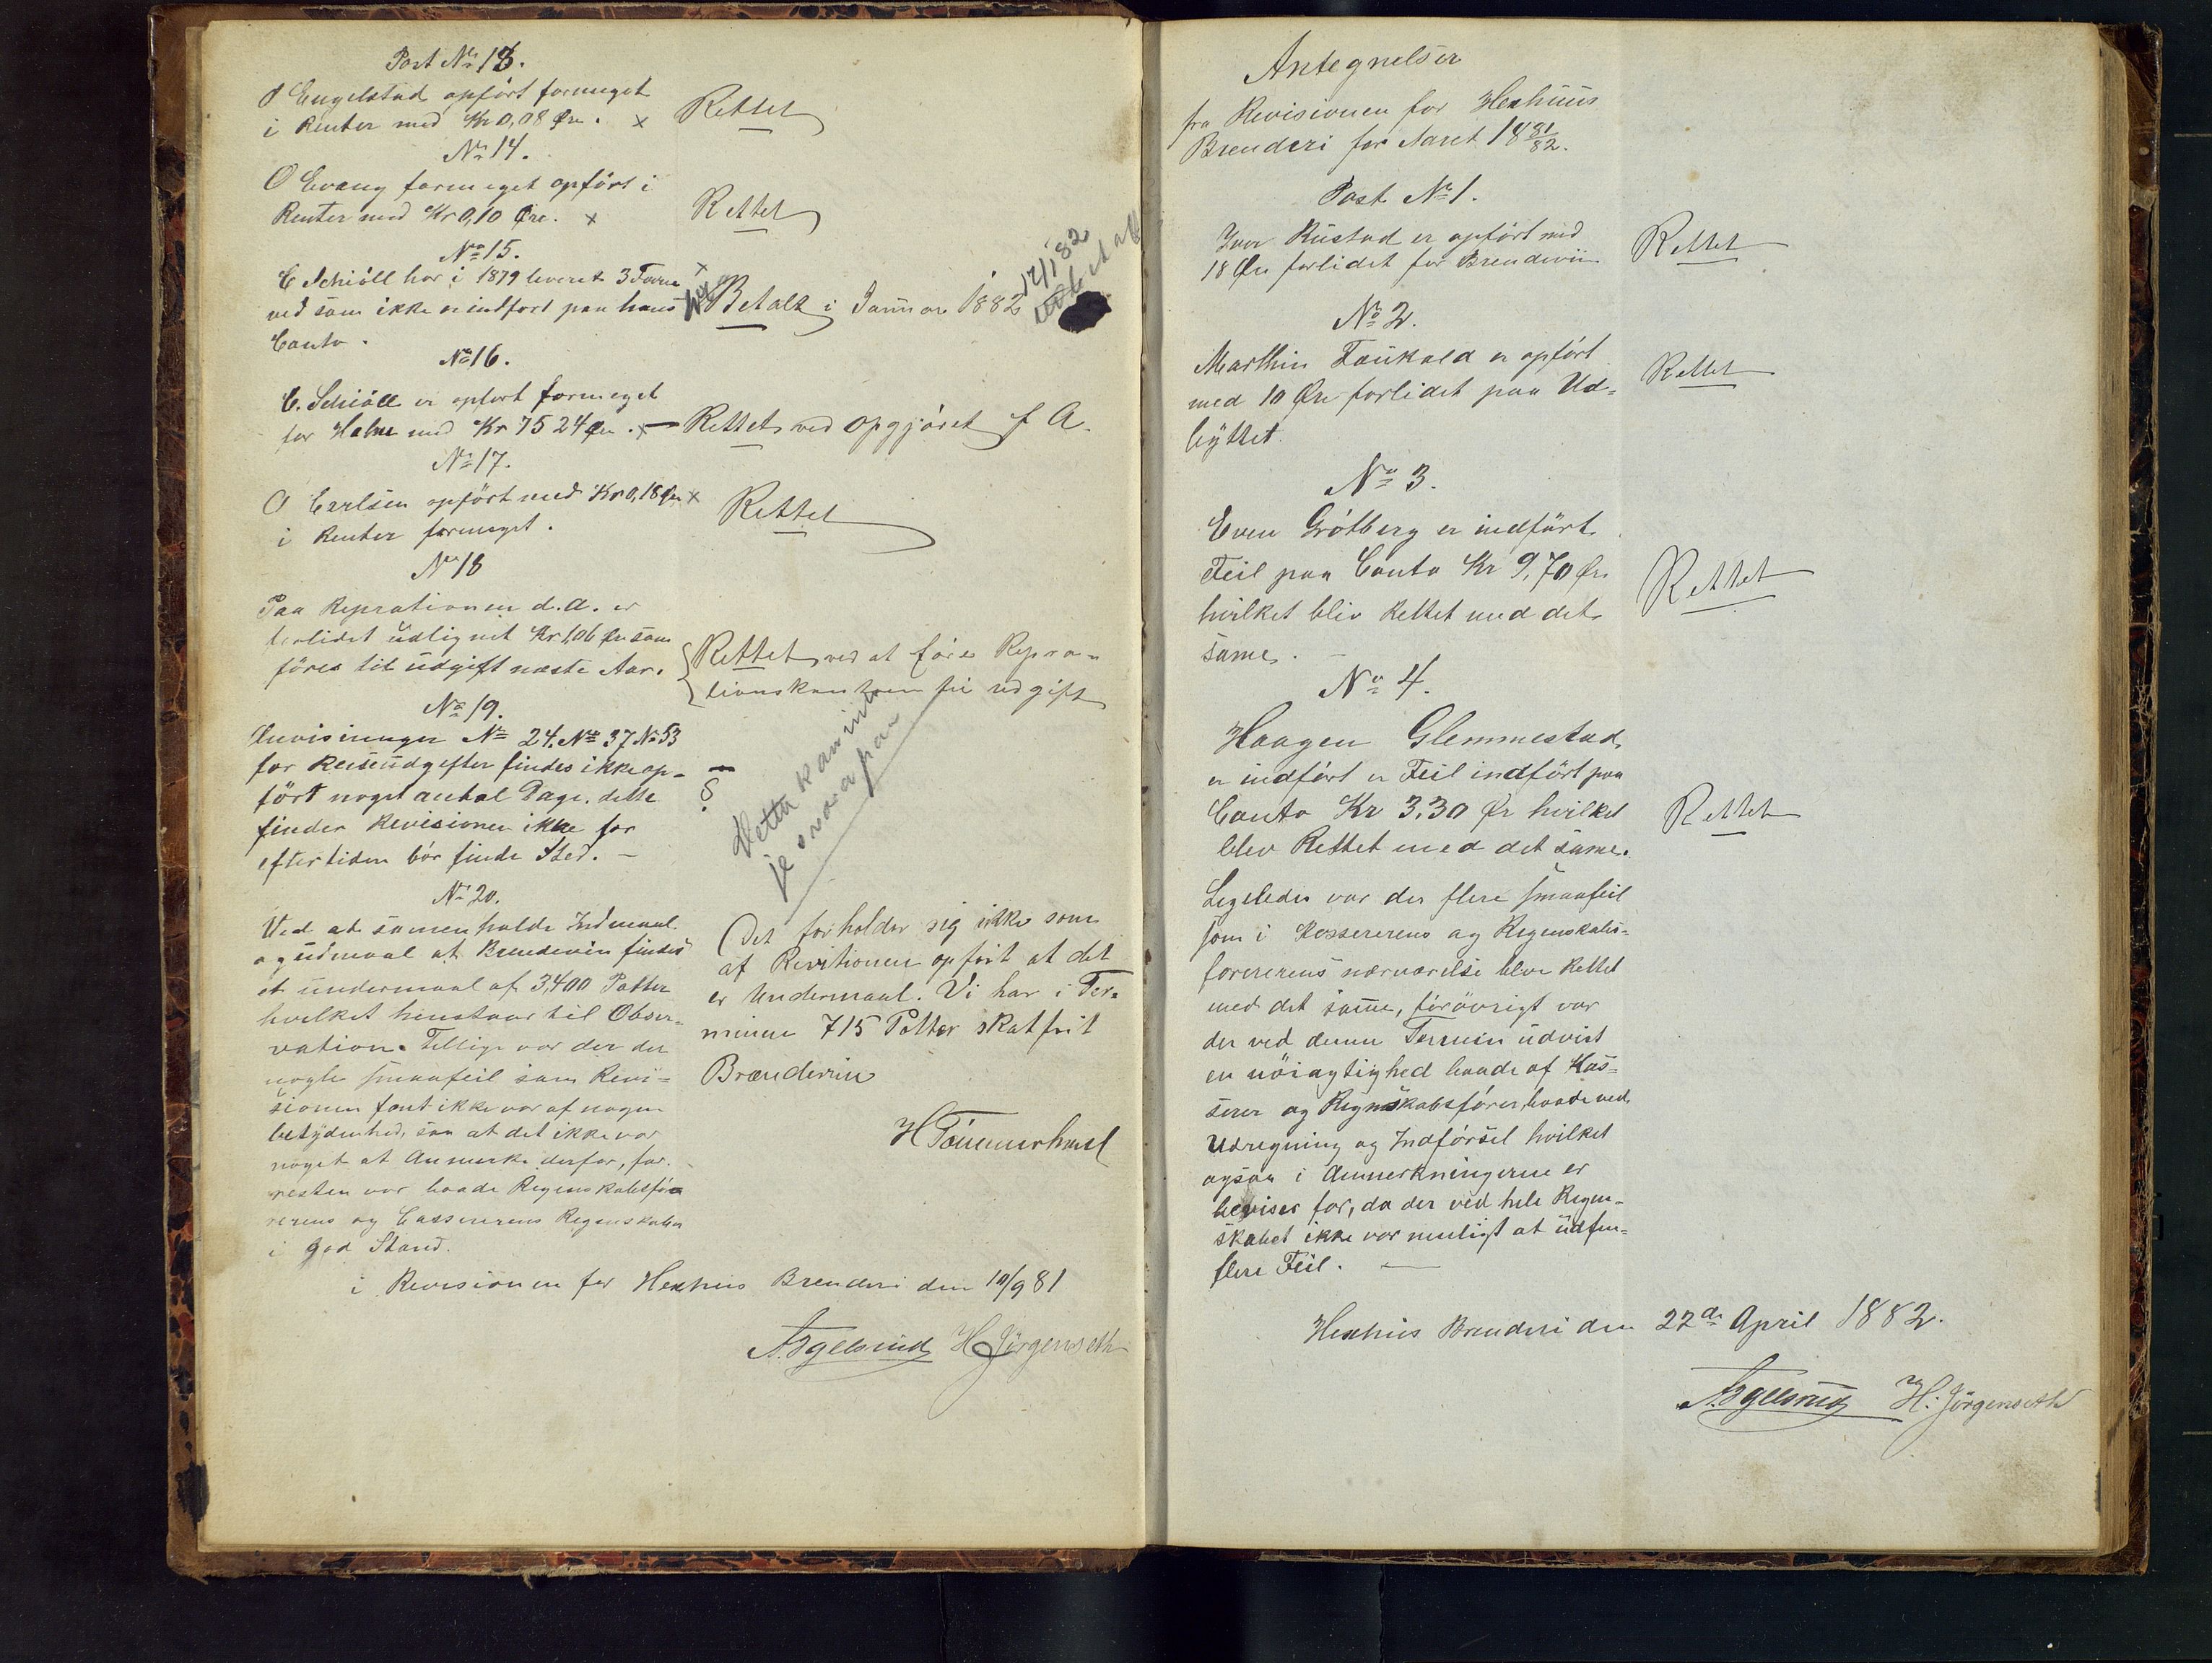 Post No 13.
O Engelstad opført formeget
i Renter med Kr 0,08 Øre. x Rettet
No 14.
O Evang formeget opført i
Renter med Kr 0,10 Øre. x Rettet
No 15.
C Schiöll har i 1879 leveret 3 Favne x
ved som ikke er indført paa hans Betalt i Januar 1882 12/1 82
Conto.
No 16.
C. Schiöll er opført formeget
for Halm med Kr 75 24 Øre. x — Rettet ved opgjøret f A.
No 17.
O Carlsen opført med Kr 0,18 Øre x
i Renter formeget. Rettet
No 18
Paa Reprationen d.a. er
forlidet üdlignet Kr 1,06 Øre som
føres til üdgift næste Aar.
Rettet ved at føre Repra-
tionskontoen til udgift
No 19.
Anvisninger No 24. No 37 No 53
for Reiseüdgifter findes ikke op-
ført noget antal Dage. dette
finder Revisionen ikke for
eftertiden bör finde Sted. —
Dette kan inte
je svara paa
No 20.
Ved at samenholde Indmaal
og üdmaal at Brendevin findes
et ündermaal af 3,400 Potter
hvilket henstaar til Obser-
vation. Tillige var der der
nogle smaafeil som Revi-
sionen fant ikke var af nogen
betydenhed, saa at det ikke var
noget at Anmerke derfor, for-
resten var baade Regenskabsfö-
rerens og Casserens Regenskaber
i god Stand.
Det forholder sig ikke som
af Revitionen opført at det
er Undermaal. Vi har i Ter-
minne 715 Potter skatfrit
Brændevin
H Tömmerhuul
i Revisionen for Hexhus Brenderi den 10/9 81
H Jörgenseth
Antegnelser
fra Revisionen for Hexhüüs
Brenderi for Aaret 18 81/82.
Post No 1.
Iver Rüstad er opført med
18 Øre forlidet for Brendeviin Rettet
No 2.
Marthin Faükald er opført
med 10 Øre forlidet paa Ud-
byttet. Rettet
No 3.
Even Grötberg er indført
Feil paa Conto Kr 9,70 Øre
hvilket blev Rettet med det
same. Rettet
No 4.
Haagen Glemmestad,
er indført er Feil indført paa
Conto Kr 3.30 Ør hvilket Rettet
blev Rettet med det same.
Ligeledes var der flere smaafeil
som i Kassererens og Regenskabs-
forerens nærværelse blev Rettet
med det same, forövrigt var
der ved denne Termin üdvist
en nöiagtighed baade af Kas-
serer og Regnskabsförer, baade ved
Udregning og Indförsel hvilket
ogsaa i Anmerkningerne er
beviser for, da der ved hele Regen-
skabet ikke var muligt at üdfin-
flere Feil. —
Hexhüs Brenderi den 22de April 1882.
H. Jörgenseth